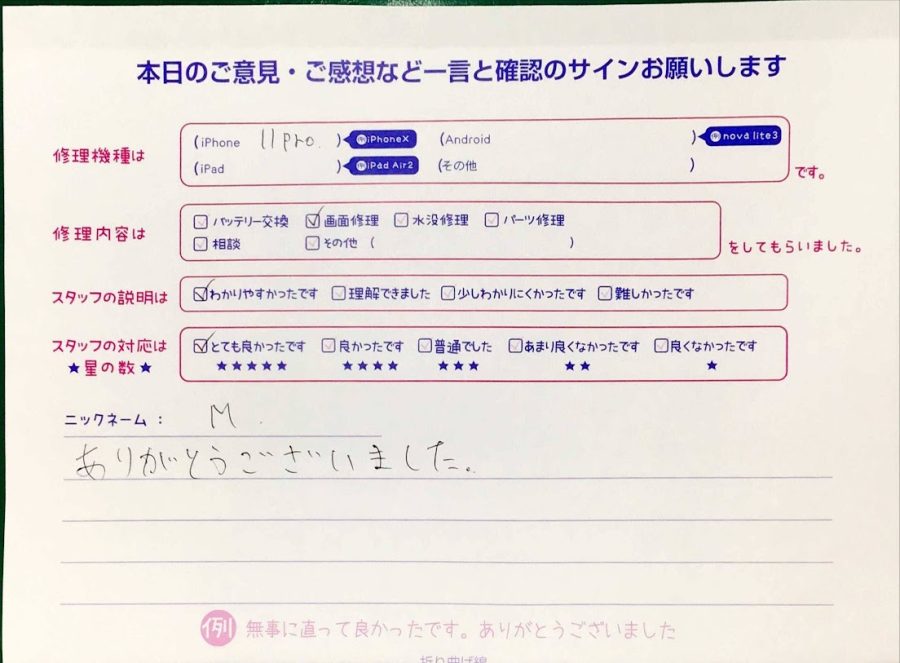 本日のご意見・ご感想など一言と確認のサインお願いします
修理機種は
(iPhone 11pro. ) 例iPhoneX (Android ) 例nova lite3
(iPad ) 例iPad Air2 (その他 )
です。
修理内容は
バッテリー交換 画面修理 水没修理 パーツ修理
相談 その他 ( )
をしてもらいました。
スタッフの説明は わかりやすかったです 理解できました 少しわかりにくかったです 難しかったです
スタッフの対応は とても良かったです 良かったです 普通でした あまり良くなかったです 良くなかったです
★星の数★ ★★★★★ ★★★★ ★★★ ★★ ★
ニックネーム： M
ありがとうございました。
例 無事に直って良かったです。ありがとうございました
折り曲げ線